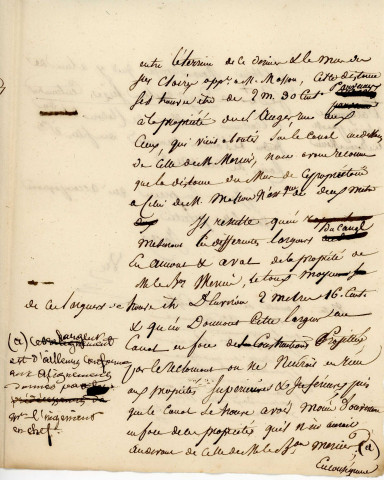 entre le terrain de ce dernier & le mur de
Ste Claire appt. à M. Masson, cette distance
s'est trouvée être de 2 m. 30 Cent.
à la propriété du Sr. Auger
Ceux, qui vient aboutir sur le Canal au-dessous
de celle de M. Mercier, nous avons reconnu
que la distance du Mur de ce propriétaire
à celui de M. Masson n'est que de deux mètres
Il résulte qu'en
mesurant les différentes largeurs du Canal
en amont & aval de la propriété de
M. le Bon Mercier, le taux moyen
de ces largeurs se trouve être d'environ 2 mètres 16. Cent.
& qu'en Donnant cette largeur au
Canal en face des Constructions Projetées
par le Réclamant on ne Nuirait en rien
aux propriétés Supérieures & Inférieures puis
que le Canal se trouve avoir moins d'ouverture
en face de ces propriétés qu'il n'en aurait
au droit de celle de M. le Bon Mercier, (a)
En conséquence
(a) Cette largeur
est d'ailleurs conforme
aux alignements
donnés par
Mr. l'ingénieur
en chef.